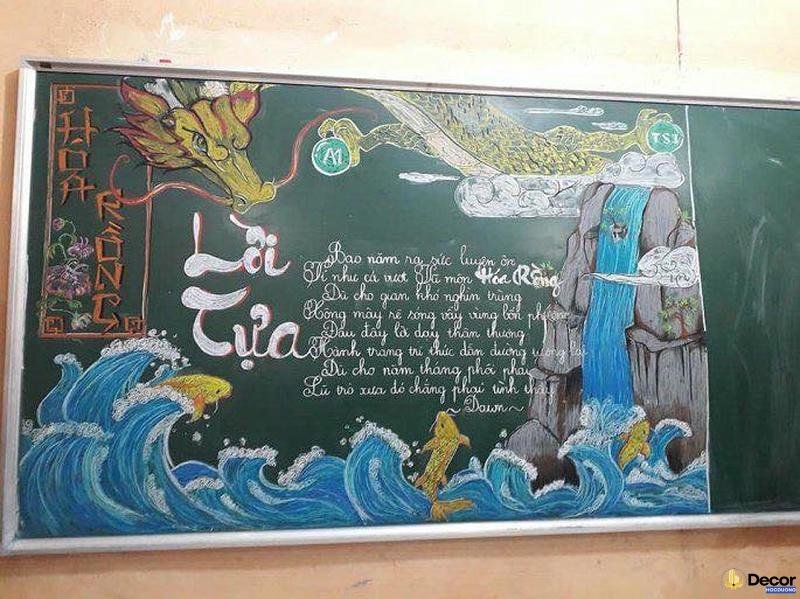 HÓA
RỒNG
A1
TS1
Lời
Tựa
Bao năm ra sức luyện ôn
Ví như cá vượt Vũ môn Hóa Rồng
Dù cho gian khó nghìn trùng
Xông mây rẽ sóng vẫy vùng bốn phương
Đâu đây lời dạy thân thương
Hành trang tri thức dẫn đường tương lai
Dù cho năm tháng phôi phai
Lũ trò xưa đó chẳng phai tình thầy
~ Dawn ~
Decor
HOCDUONG